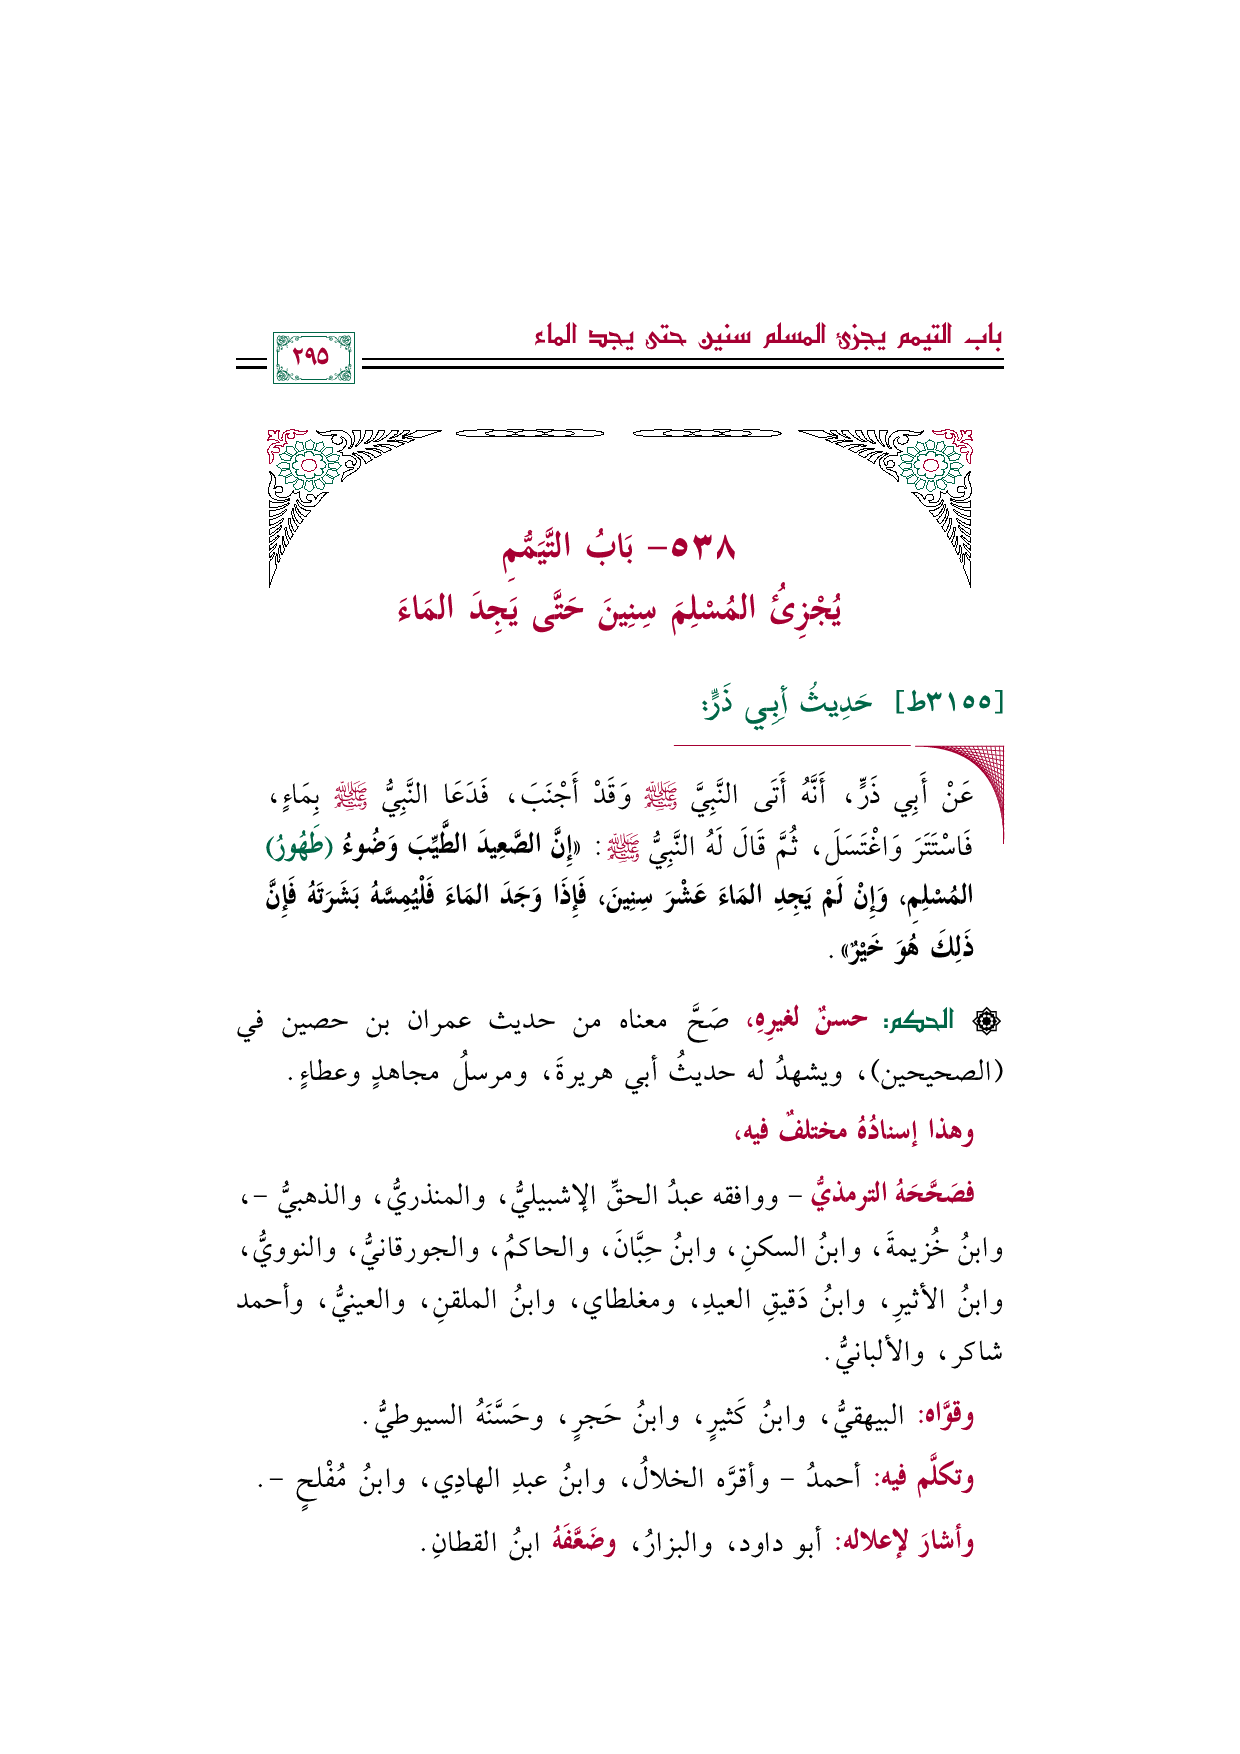 باب التيمم يجزئ المسلم سنين حتى يجد الماء
٢٩٥
٥٣٨- بَابُ التَّيَمُّمِ
يُجْزِئُ المُسْلِمَ سِنِينَ حَتَّى يَجِدَ المَاءَ
[٣١٥٥ط] حَدِيثُ أَبِي ذَرٍّ:
عَنْ أَبِي ذَرٍّ، أَنَّهُ أَتَى النَّبِيَّ ﷺ وَقَدْ أَجْنَبَ، فَدَعَا النَّبِيُّ ﷺ بِمَاءٍ،
فَاسْتَتَرَ وَاغْتَسَلَ، ثُمَّ قَالَ لَهُ النَّبِيُّ ﷺ: «إِنَّ الصَّعِيدَ الطَّيِّبَ وَضُوءُ (طَهُورُ)
المُسْلِمِ، وَإِنْ لَمْ يَجِدِ المَاءَ عَشْرَ سِنِينَ، فَإِذَا وَجَدَ المَاءَ فَلْيُمِسَّهُ بَشَرَتَهُ فَإِنَّ
ذَلِكَ هُوَ خَيْرٌ».
الحكم: حسنٌ لغيرِهِ، صَحَّ معناه من حديث عمران بن حصين في
(الصحيحين)، ويشهدُ له حديثُ أبي هريرةَ، ومرسلُ مجاهدٍ وعطاءٍ.
وهذا إسنادُهُ مختلفٌ فيه،
فصَحَّحَهُ الترمذيُّ - ووافقه عبدُ الحقِّ الإشبيليُّ، والمنذريُّ، والذهبيُّ -،
وابنُ خُزيمةَ، وابنُ السكنِ، وابنُ حِبَّانَ، والحاكمُ، والجورقانيُّ، والنوويُّ،
وابنُ الأثيرِ، وابنُ دَقيقِ العيدِ، ومغلطاي، وابنُ الملقنِ، والعينيُّ، وأحمد
شاكر، والألبانيُّ.
وقوَّاه: البيهقيُّ، وابنُ كَثيرٍ، وابنُ حَجرٍ، وحَسَّنَهُ السيوطيُّ.
وتكلَّم فيه: أحمدُ - وأقرَّه الخلالُ، وابنُ عبدِ الهادِي، وابنُ مُفْلحٍ -.
وأشارَ لإعلاله: أبو داود، والبزارُ، وضَعَّفَهُ ابنُ القطانِ.